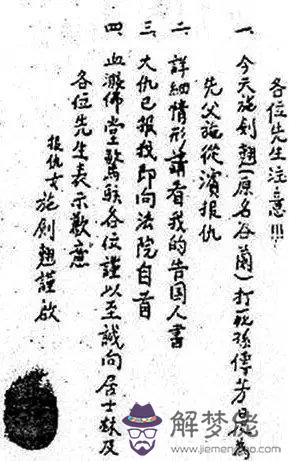 各位先生注意!!!
一、今天施剑翘(原名谷蘭)打死孫傳芳是為
先父施從濱報仇
二、詳細情形請看我的告国人書
三、大仇已報我即向法院自首
四、血濺佛堂驚駭各位謹以至誠向居士林及
各位先生表示歉意
報仇女施剑翘謹啟
解梦佬